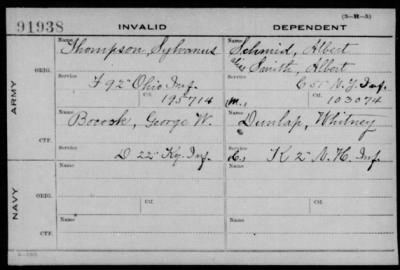 91938
INVALID
DEPENDENT
(3-H-5)
ARMY
ORIG.
Name
Thompson, Sylvanus
Service
F 92" Ohio Inf.
Ctf.
195714
Name
Schmid, Albert
alias Smith, Albert
Service
C 5" N.Y. Inf.
M.,
Ctf.
103074
CTF.
Name
Bocook, George W.
Service
D 22" Ky. Inf.
Name
Dunlap, Whitney
Service
C., K 2" N.H. Inf.
NAVY
ORIG.
Name
Service
Ctf.
Name
Service
Ctf.
CTF.
Name
Service
Name
Service